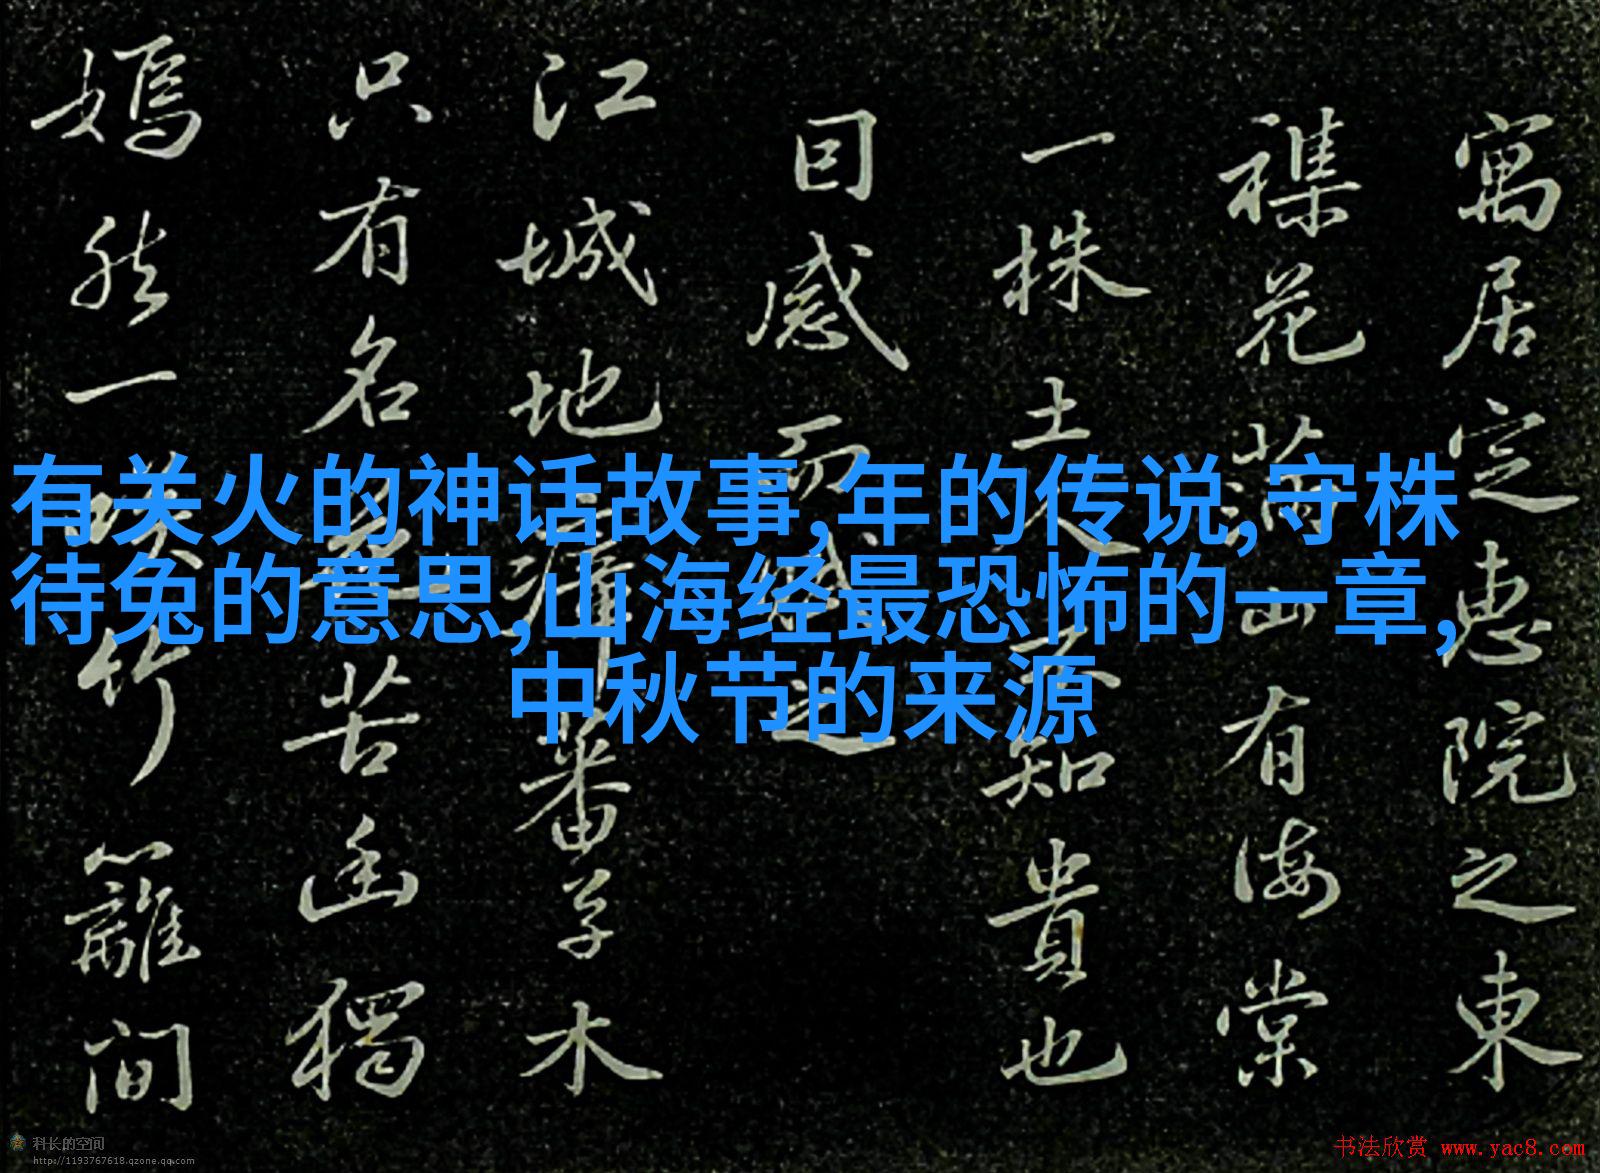 寓居定惠院之東
襍花滿山有海棠
一株土人不知貴也
因感而之
江城地瘴蕃草木
只有名花苦幽獨
嫣然一笑竹籬間
有关火的神话故事,年的传说,守株
待兔的意思,山海经最恐怖的一章,
中秋节的来源
科长的空间
http://1193767618.qzone.qq.com
书法欣赏 www.yac8.com